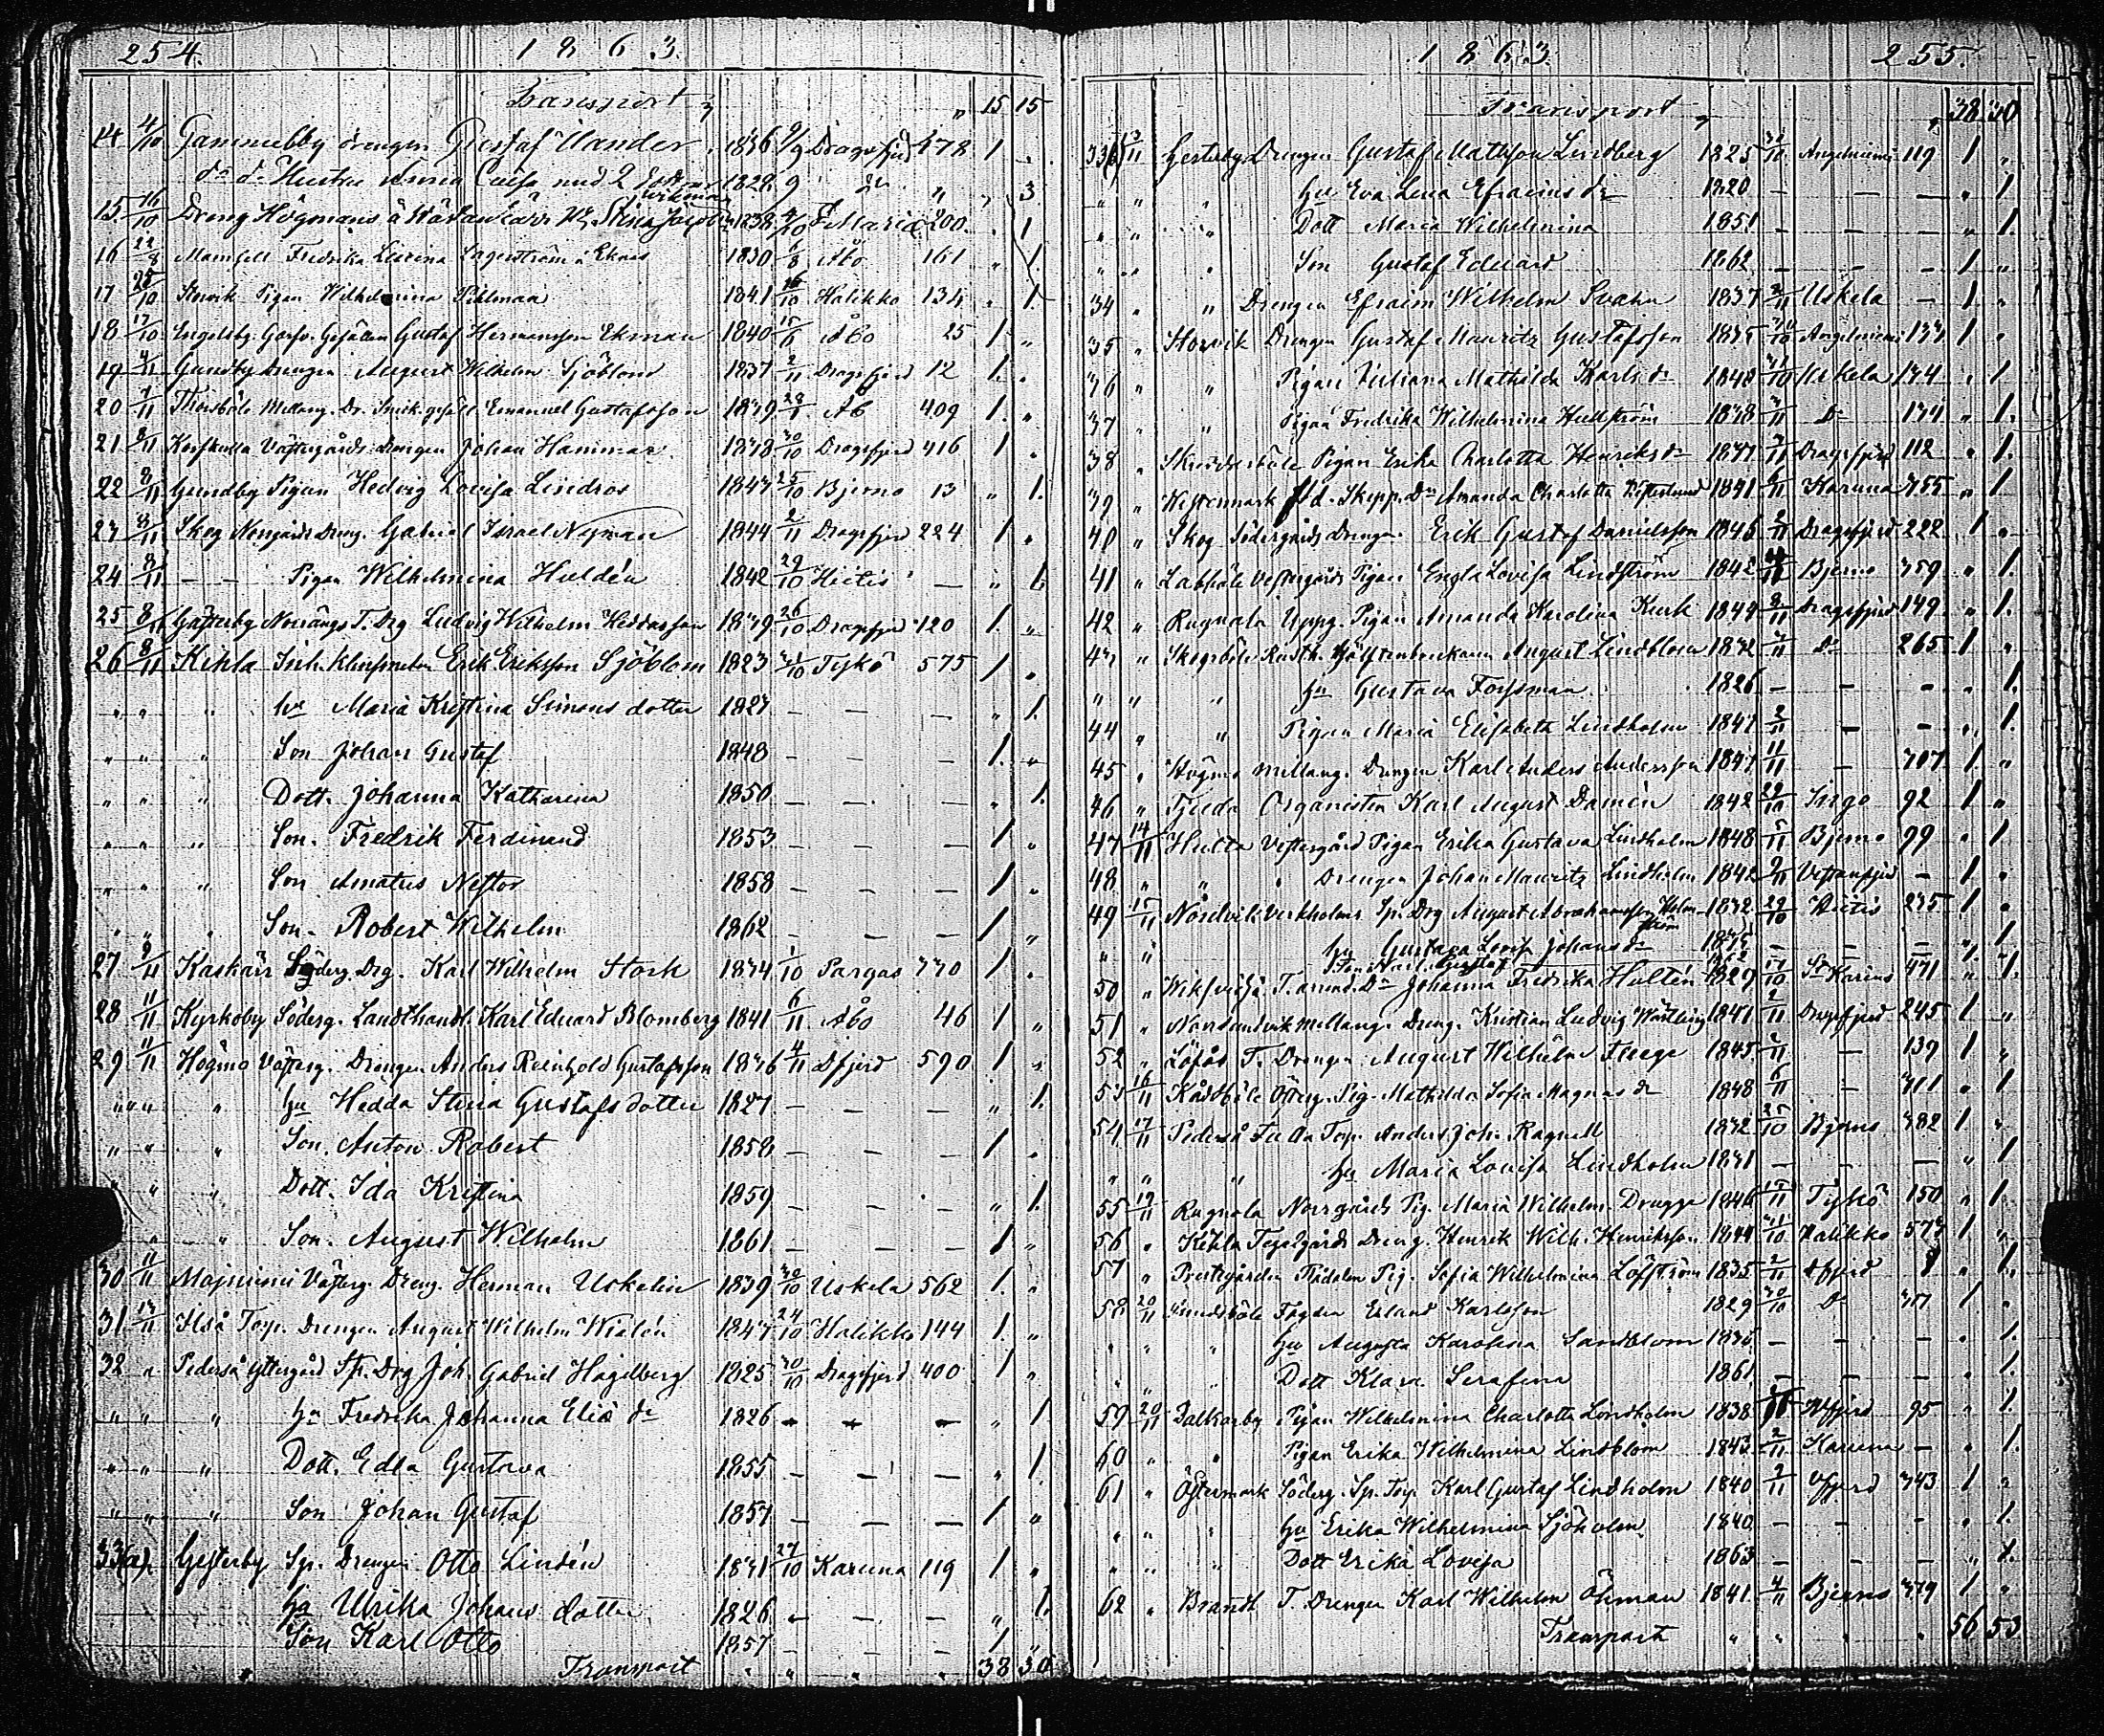 254. 1863.
Transport 15 15
14 4/10 Gammelby drengen Gustaf Nander 1836 9/9 Dragsfjerd 478 1 "
do do Hustru Anna Caisa med 2 1829 9 do " " 3
15 16/10 Dreng Högmans 1838 4/10 St Marie 200 . 1
16 22/8 Mamsell Fredrika Lovisa Lagerström, Eknäs 1830 6/8 Åbo 161 " 1.
17 25/10 Storvik Pigan Wilhelmina Pihlman 1841 16/10 Halikko 134 " 1.
18 17/10 Engelsby Garfv. Gesällen Gustaf Hermansson Ekman 1840 15/6 Åbo 25 1. "
19 4/11 Gundby Drengen August Wilhelm Sjöblom 1837 2/11 Dragsfjerd 12 1. "
20 7/11 Mellang. Dr. Smidsgesäll Emanuel Gustafsson 1839 28/1 Åb 409 1. "
21 8/11 Västergårds drengen Johan Hammar 1838 30/10 Dragsfjerd 416 1 "
22 8/11 Gundby Pigan Hedvig Lovisa Lindros 1843 25/10 Bjerno 13 " 1.
23 8/11 Skog Norrgårds Dreng. Gabriel Israel Nyman 1844 2/11 Dragsfjerd 224 1 "
24 8/11 — — Pigan Wilhelmina Huldén 1842 29/10 Hitis — " 1.
25 8/11 Gästerby Norrängs T. Drg Ludvig Wilhelm 1839 26/10 Dragsfjerd 120 1. "
26 8/11 Kihla Inh. Erik Eriksson Sjöblom 1823 31/10 Tykö 575 1 "
" " " hu Maria Kristina Simons dotter 1827 — — — " 1.
" " " Son Johan Gustaf 1848 — — — 1. "
" " " Dott. Johanna Katharina 1850 — — — " 1.
" " " Son. Fredrik Ferdinand 1853 — — — 1 "
" " " Son Amatus Nestor 1858 — — — 1 "
" " " Son. Robert Wilhelm 1862 — — — 1 "
27 9/11 Kaskärr Söderg Drg. Karl Wilhelm Stork 1834 1/10 Pargas 330 1 "
28 11/11 Kyrkoby Söderg. Landthandl. Karl Eduard Blomberg 1841 6/11 Åbo 46 1 "
29 11/11 Högmo Västerg. Drengen Anders Reinhold Gustafsson 1836 4/11 Dfjerd 590 1 "
" " " " hu Hedda Stina Gustafs dotter 1827 — — — " 1.
" " " Son. Anton Robert 1858 — — — 1 "
" " " Dott. Ida Kristina 1859 — — — " 1.
" " Son. August Wilhelm 1861 — — — 1 "
30 11/11 Majniemi Västerg. Dreng. Herman Uskelin 1839 30/10 Uskela 562 1. "
31 13/11 Ilså Torp. Drengen August Wilhelm Widén 1843 24/10 Halikko 144 1. "
32 " Pederså Yttergård Sp. Drg Joh. Gabriel Hagelberg 1825 30/10 Dragsfjerd 400 1 "
" " " hu Fredrika Johanna Elias dr 1826 — — — " 1
" " " Dott. Edla Gustava 1855 — — — " 1.
" " " Son Johan Gustaf 1857 — — — 1 "
33(a) Gesterby Sp. Drengen Otto Lindén 1831 27/10 Karuna 119 1 "
hu Ulrika Johans dotter 1826 — — — " 1.
Son Karl Otto 1857 — — — 1 "
Transport " " " " 38 30
1863. 255.
Transport " 38 30
33b 13/11 Gesterby Drengen Gustaf Mattsson Lindberg 1825 31/10 Angelniemi 119 1 "
" " " hu Eva Lena Efraims dr 1820 — — — " 1.
" " " Dott Maria Wilhelmina 1851 — — — " 1.
" " " Son Gustaf Eduard 1862 — — — 1 "
34 " " Drengen Efraim Wilhelm Svahn 1837 2/11 Uskela — 1 "
35 " Storvik Drengen Gustaf Mauritz Gustafsson 1835 Angelniemi 133 1 "
36 " " Pigan Juliana Mathilda Karls dr 1848 31/10 Uskela 134 " 1
37 " " Pigan Fredrika Wilhelmina Hellström 1838 3/11 Do 134 " 1.
38 " Pigan Erika Charlotta Henriks dr 1837 3/11 Dragsfjerd 112 " 1.
39 " Westermark Skepp. Dr Amanda Charlotta Westerlund 1841 6/11 Karuna 355 " 1
40 " Skog Södergårds Drengen Erik Gustaf Danielsson 1845 2/11 Dragsfjerd 222 1 "
41 " Labböle Vestergårds Pigan Engla Lovisa Lindström 1842 Bjerno 359 " 1.
42 " Rugnola Uppg. Pigan Amanda Karolina Kurk 1844 8/11 Dragsfjerd 149 " 1.
43 " Skogsböle Rusth. August Lindblom 1832 3/11 Do 265 1 "
" " " hu Gustava Forsman 1826 — — — " 1.
44 " " Pigan Maria Elisabeth Lindholm 1841 2/11 — — " 1.
45 " Högmo Mellang. Drengen Karl Anders Andersson 1841 11/11 — 307 1. "
46 " Tjuda Organisten Karl August Damén 1842 29/10 Ingo 92 1 "
47 14/11 Hulta Vestergård Pigan Erika Gustava Lindholm 1848 5/11 Bjerno 99 " 1.
48 " " " Drengen Johan Mauritz Lindholm 1842 2/11 Vestanfjerd — 1 "
49 15/11 Nordvik Verkholms Sp. Drg August Abrahamsson Holmström 1832 29/10 Hitis 235 1 "
" " hu Gustava Lovisa Johans dr 1835 — — — " 1
Son Karl Gustaf 1862
50 " Johanna Fredrika Hultén 1829 St Karins 471 " 1.
51 " Norrsundvik Mellang. Dreng. Kristian Ludvig 1841 2/11 Dragsfjerd 245 1 "
52 " Löfås T. Drengen August Wilhelm Fleege 1845 2/11 — 139 1 "
53 16/11 Kådböle Österg. Pig. Mathilda Sofia Magnus dr 1848 6/11 — 311 " 1
54 17/11 Pederså Torp. Anders Joh. Ragnell 1832 25/10 Bjerno 382 1 "
" " " hu Maria Lovisa Lindholm 1831 — — — " 1
55 19/11 Rugnola Norrgårds Pig. Maria Wilhelm. Drugge 1846 15/11 Tykö 150 " 1.
56 " Kihla Tegelgårds Dreng. Henrik Wilh. Henriksson 1844 31/10 Halikko 573 1 "
57 " Prestgården Flådalen Pig. Sofia Wilhelmina Löfström 1835 2/11 Dfjerd " 1.
58 20/11 Sundsböle Erland Karlsson 1829 30/10 Do 1 "
" " " hu Augusta Karolina Sandblom 1835 — — — " 1.
" " Dott Klara Serafina 1861 — — — " 1.
59 20/11 Dalkarby Pigan Wilhelmina Charlotta Lindholm 1838 95 " 1.
60 " " Pigan Erika Wilhelmina Lindblom 1843 2/11 Karuna — " 1.
61 " Östermark Söderg. Sp. Torp. Karl Gustaf Lindholm 1840 2/11 Vfjerd 343 1 "
" " " hu Erika Wilhelmina Sjöholm 1840 — — — " 1.
" " " Dott Erika Lovisa 1863 — — — " 1.
62 " Brandt T. Drengen Karl Wilhelm Öhman 1841 4/11 Bjerno 379 1 "
Transport " " " " 56 53